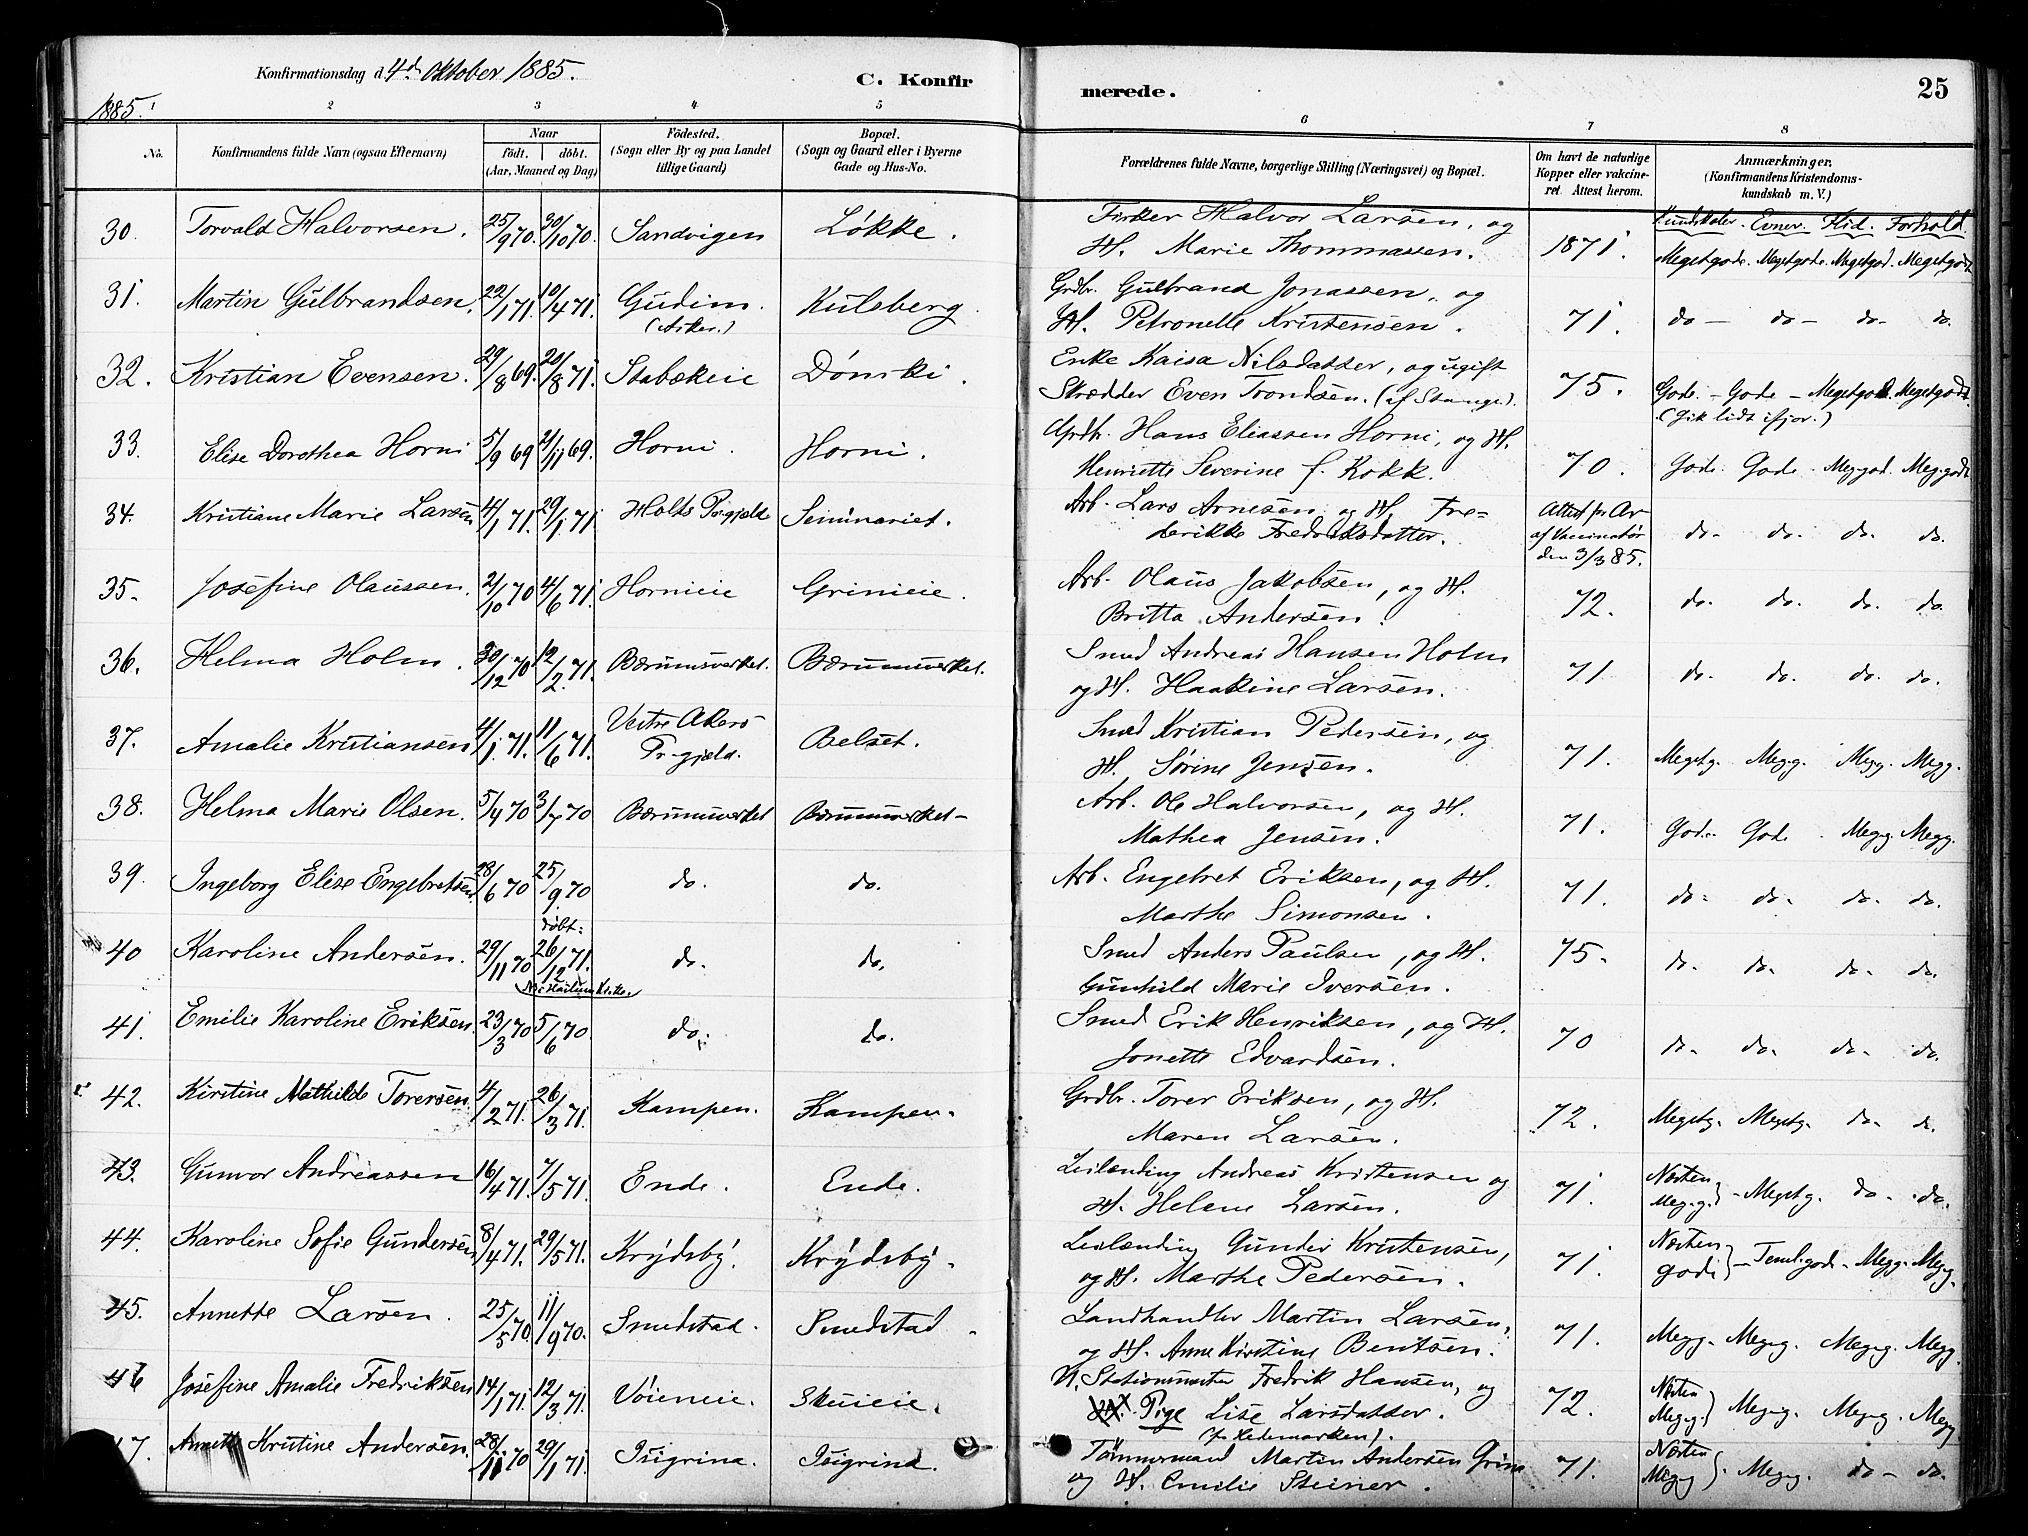 Konfirmationsdag d. 4de Oktober 1885.
C. Konfirmerede.
25
1885.
1 2 3 4 5 6 7 8
No.
Konfirmandens fulde Navn (ogsaa Efternavn)
Naar
födt. döbt.
(Aar, Maaned og Dag)
Födested.
(Sogn eller By og paa Landet
tillige Gaard)
Bopæl.
(Sogn og Gaard eller i Byerne
Gade og Hus-No.
Forældrenes fulde Navne, borgerlige Stilling (Næringsvei) og Bopæl.
Om havt de naturlige
Kopper eller vakcine-
ret. Attest herom.
Anmærkninger.
(Konfirmandens Kristendoms-
kundskab m. V.)
Kundskaber. Evner. Flid. Forhold.
30. Torvald Halvorsen. 25/9 70. 30/10 70. Sandvigen Løkke. Fisker Halvor Larsen, og
H. Marie Thommassen. 1871. Megetgode. Megetgode. Megetgod. Megetgodt
31. Martin Gulbrandsen. 22/1 71. 10/4 71. Gudim. Kulsberg. Grdbr. Gulbrand Jonassen, og
(Asker.) H. Petronelle Kristensen. 71. do - do - do - do.
32. Kristian Evensen. 29/8 69. 20/8 71. Stabækeie Dønski. Enke Kaisa Nilsdatter, og ugift
Skrædder Even Trondsen. (af Stange). 75. Gode. - Gode - Megetgod. Megetgodt.
(Gik lidt ifjor.)
33. Elise Dorothea Horni 5/9 69 21/11 69. Horni. Horni. Grdb. Hans Eliassen Horni, og H.
Henriette Severine f. Kokk. 70. Gode. Gode - Meg. god. Meg. godt
34. Kristiane Marie Larsen 4/1 71. 29/1 71. Holts Prgjeld Seminariet. Arb. Lars Arnesen og H. Fre=
derikke Fredriksdatter. Attest fr
af Vaccinatør
den 3/3 85. do. do. do. do.
35. Josefine Olaussen. 2/10 70 4/6 71. Hornieie Grinieie. Arb. Olaus Jakobsen, og H.
Britta Andersen. 72. do. do. do. do.
36. Helma Holm. 30/12 70 12/2 71. Bærumsverket. Bærumsverket. Smed Andreas Hansen Holm
og H. Haakine Larsen. 71 do. do. do. do.
37. Amalie Kristiansen 4/1 71. 11/6 71. Vestre Akers
Pr-gjeld. Belset. Smed Kristian Pedersen, og
H. Sørine Jensen. 71. Megetg. Meg.g. Megg. Megg.
38. Helma Marie Olsen. 5/4 70 3/7 70 Bærumsverket Bærumsverket - Arb. Ole Halvorsen, og H.
Mathea Jensen. 71. Gode. Gode. Meg.g. Megg.
39. Ingeborg Elise Engebretsen. 28/6 70 25/9 70 do. do. Arb. Engebret Eriksen, og H.
Marthe Simonsen. 71. do - do - do - do.
40 Karoline Andersen. 29/11 70 døbt:
26/12 71. do. do. Smed Anders Paulsen, og H.
Gunhild Marie Iversen. 75. do - do - do - do.
41. Emilie Karoline Eriksen. 23/3 70 5/6 70 do. do. Smed Erik Henriksen, og H.
Jonette Edvardsen. 70 do - do - do - do.
42. Kirstine Mathilde Torersen 4/2 71. 26/3 71. Kampen. Kampen. Grdbr. Torer Eriksen, og H.
Maren Larsen. 72. Megetg. Megetg. do - do.
43. Gunvor Andreassen 16/4 71. 7/5 71. Ende. Ende. Leilænding Andreas Kristensen og
H. Helene Larsen. 71. Næsten
Meg.g.} - Megetg. do - do.
44. Karoline Sofie Gundersen 8/4 71. 29/5 71. Krydsby. Krydsby. Leilænding Gunder Kristensen,
og H. Marthe Pedersen. 71. Næsten
gode} - Teml. gode - Megg. Meg.g.
45. Annette Larsen. 25/5 70. 11/9 70. Smedstad. Smedstad. Landhandler Martin Larsen,
og H. Anne Kirstine Bentsen. 71. Megg. Meg.g. Meg.g. Megg.
46 Josefine Amalie Fredriksen 14/1 71. 12/3 71. Vøieneie. Skuieie. U. Stationsmester Fredrik Hansen, og
Pige Lise Larsdatter.
(fr Hedemarken). 72. Næsten
Meg.g.} Meg.g. Meg.g. Megg
47. Annette Kristine Andersen. 28/11 70 29/1 71. Isigrina. Isigrina. Tømmermand Martin Andersen Grina
og H. Emilie Steiner. 71. Næsten
Megg}. Meg.g. do - do.